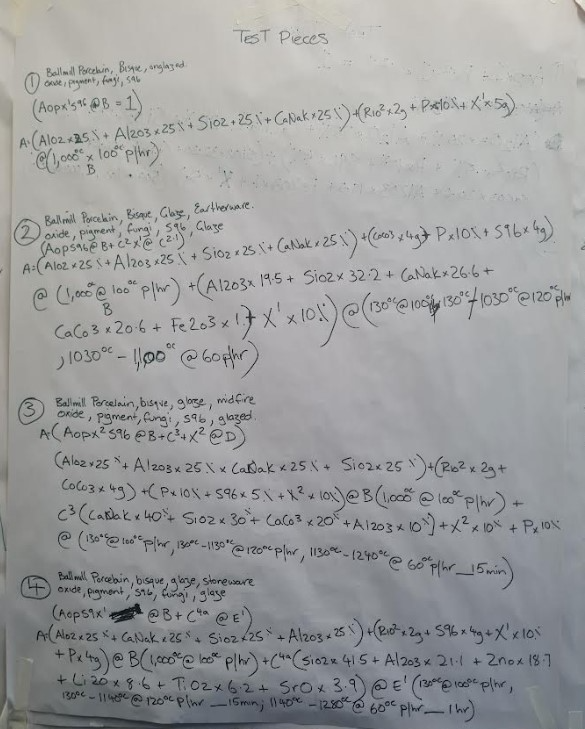 Test Pieces
① Ballmill Porcelain, Bisque, unglazed.
oxide, pigment, fungi, S96
(Aopx'S96 @B = 1)
A=(Al02 x 25% + Al203 x 25% + Si02 + 25% + CaNak x 25%) + (Ri0² x 2g + Px10% + X' x 5g)
@ (1,000°c x 100°c p/hr)
B
② Ballmill Porcelain, Bisque, Glaze, Eartherware.
oxide, pigment, fungi, S96, Glaze
(AopS96 @ B + C² x' @ C2.1)
A=(Al02 x 25% + Al203 x 25% + Si02 x 25% + CaNak x 25%) + (CoC03 x 4g + Px10% + S96 x 4g)
@ (1,000°c @ 100°c p/hr) + (Al203 x 19.5 + Si02 x 32.2 + CaNak x 26.6 +
B
CaCo3 x 20.6 + Fe203 x 1.+ X' x 10%) @ (130°c @ 100°c 130°c - 1030°c @ 120°c p/hr
, 1030°c - 1,100°c @ 60 p/hr)
③ Ballmill Porcelain, bisque, glaze, midfire
oxide, pigment, fungi, S96, glazed.
A=(Aopx²S96 @B + C³ + X² @D)
(Al02 x 25% + Al203 x 25% x CaNak x 25% + Si02 x 25%) + (Ri0² x 2g +
CoC03 x 4g) + (Px10% + S96 x 5% + X² x 10%) @ B (1,000°c @ 100°c p/hr) +
C³ (CaNak x 40% + Si02 x 30% + CaC03 x 20% + Al203 x 10%) + X² x 10% + Px10%
@ (130°c @ 100°c p/hr, 130°c - 1130°c @ 120°c p/hr, 1130°c - 1240°c @ 60°c p/hr _ 15min)
④ Ballmill Porcelain, bisque, glaze, stoneware
oxide, pigment, S96, fungi, glaze
(AopS9x' @ B + C4a @ E')
A=(Al02 x 25% + CaNak x 25% + Si02 x 25% + Al203 x 25%) + (Ri0² x 2g + S96 x 4g + X' x 10%
+ Px4g) @ B (1,000°c @ 100°c p/hr) + C4a (Si02 x 41.5 + Al203 x 21.1 + Zn0 x 18.7
+ Li20 x 8.6 + Ti02 x 6.2 + Sr0 x 3.9) @ E' (130°c @ 100°c p/hr,
130°c - 1140°c @ 120°c p/hr _ 15min, 1140°c - 1280°c @ 60°c p/hr _ 1hr)